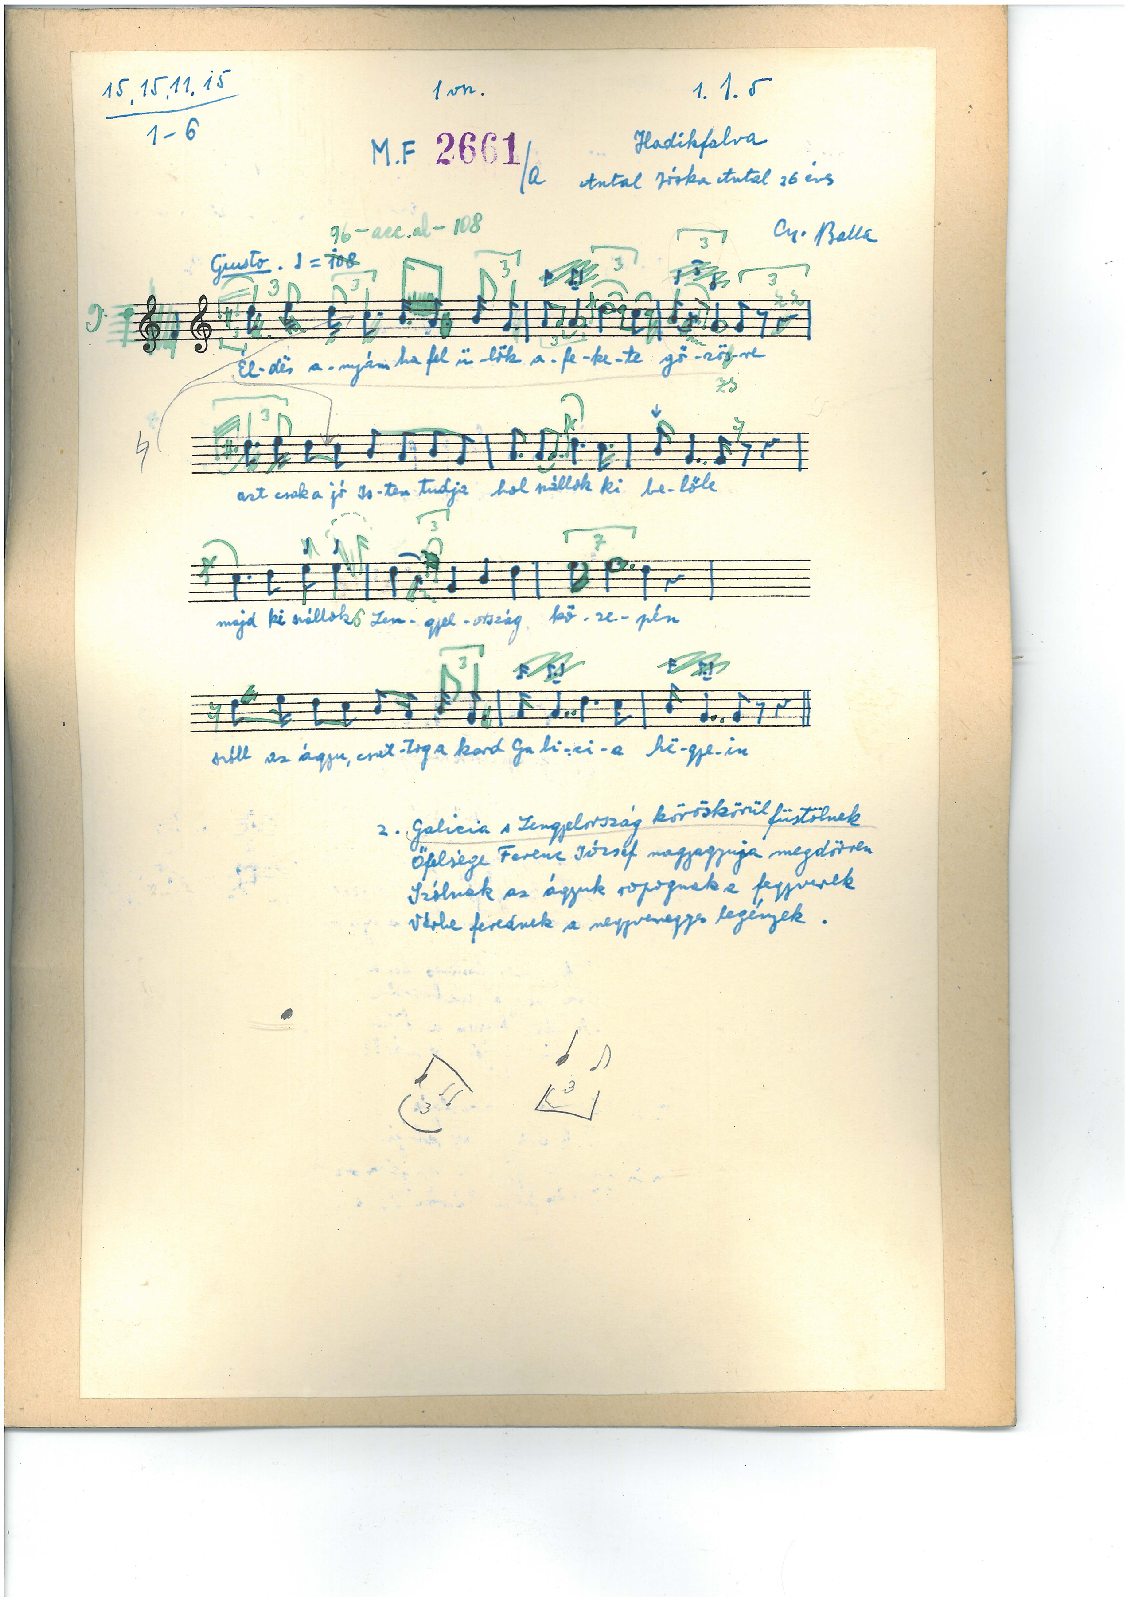 15, 15, 11, 15
1-6
1 vn.
1. 1. 5
M.F 2661/a
Hadikfalva
Antal Jóska Antal 26 éves
Gy. Balla
96 - acc. al - 108
Giusto. ♩ = 108
Él-des a-nyám ha fel ü-lök a-fe-ke-te gö-zös-re
azt csak a jó Is-ten tudja hol szállok ki be-löle
majd ki szállok Len-gyel-ország kö-ze-pén
szóll az ágyu, csat-tog a kard Ga-li-ci-a he-gye-in
2. Galicia s Lengyelország köröskörül füstölnek
Őfelsége Ferenc József nagyágyuja megdörren
Szólnak az ágyuk ropognak a fegyverek
Vérbe ferednek a negyvenegyes legények.